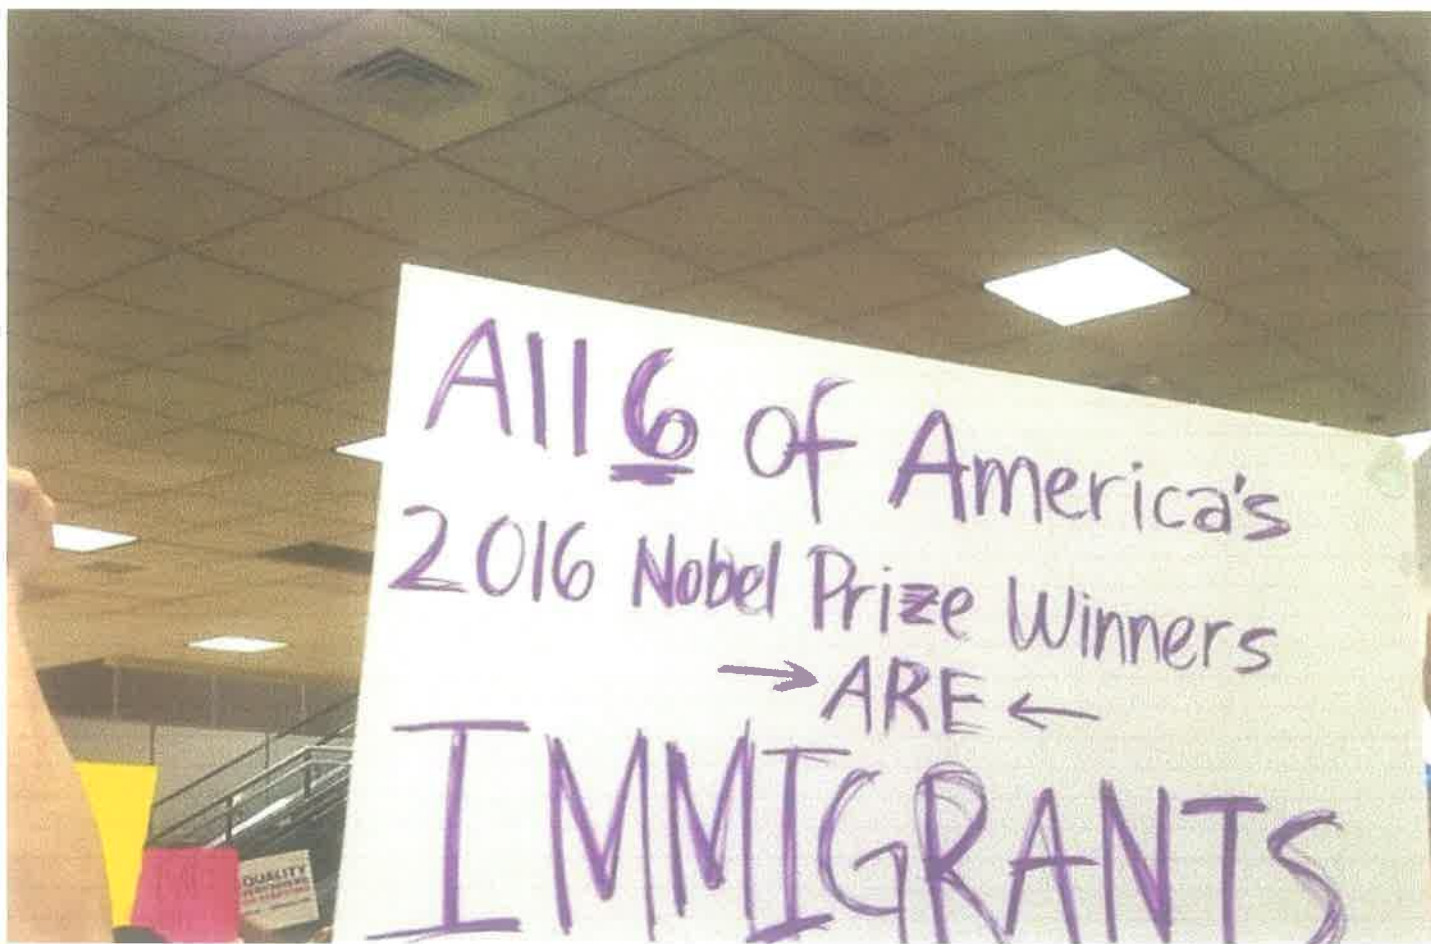 All 6 of America's
2016 Nobel Prize Winners
→ ARE ←
IMMIGRANTS
QUALITY